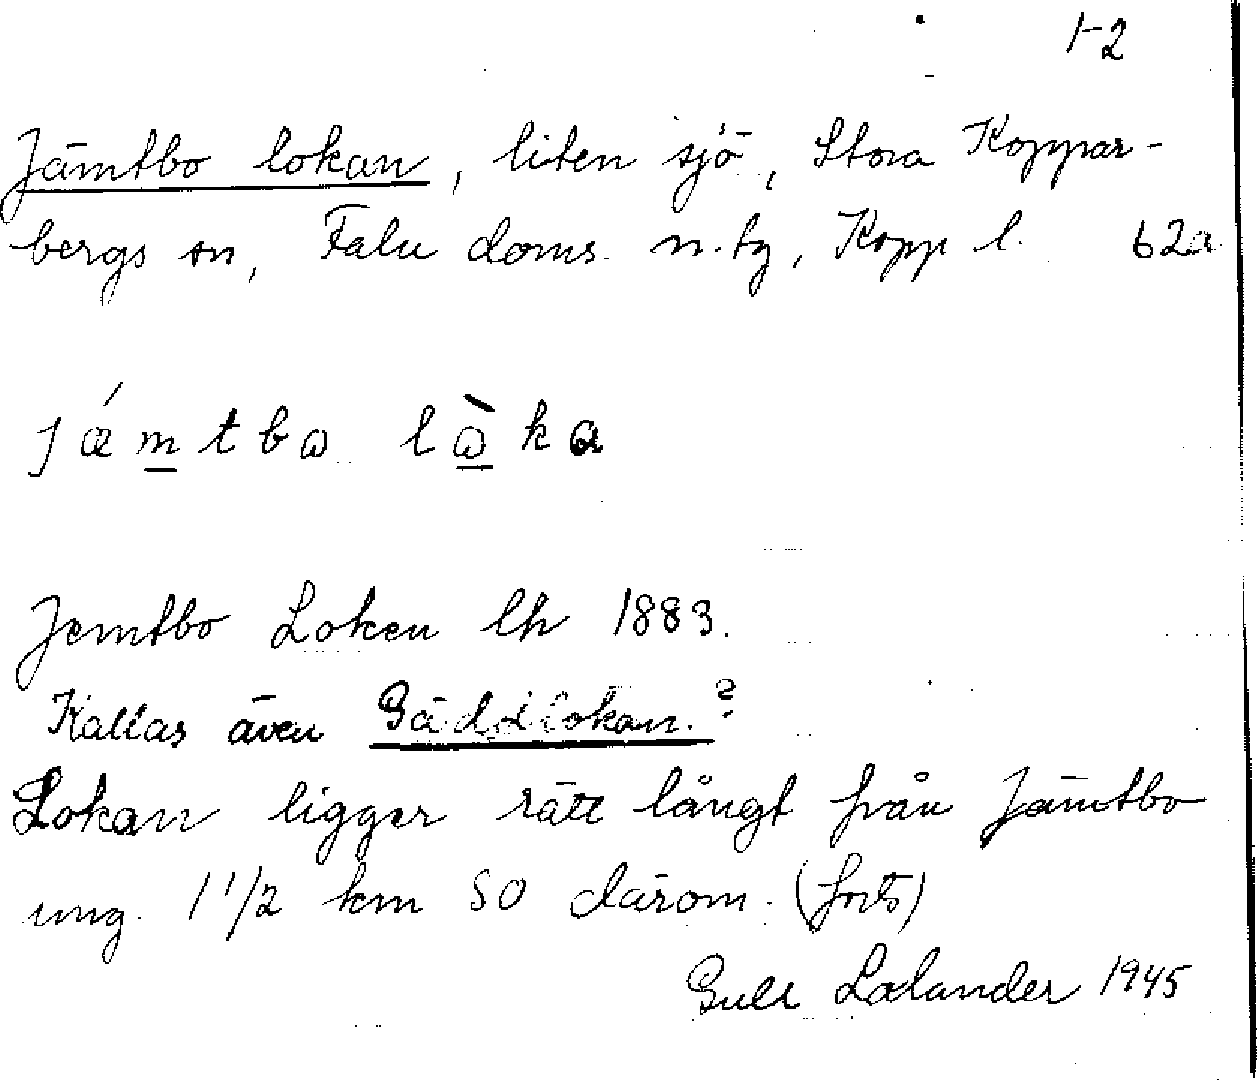 1-2
Jämtbo lokan, liten sjö, Stora Koppar-
bergs sn, Falu doms. n. tg, Kopp l. 62a
jǽmtbω lὼka
Jemtbo Loken lh 1883.
Kallas även Gäddlokan.?
Lokan ligger rätt långt från Jämtbo
ung. 1 1/2 km SO därom. (forts)
Gull Lælander 1945